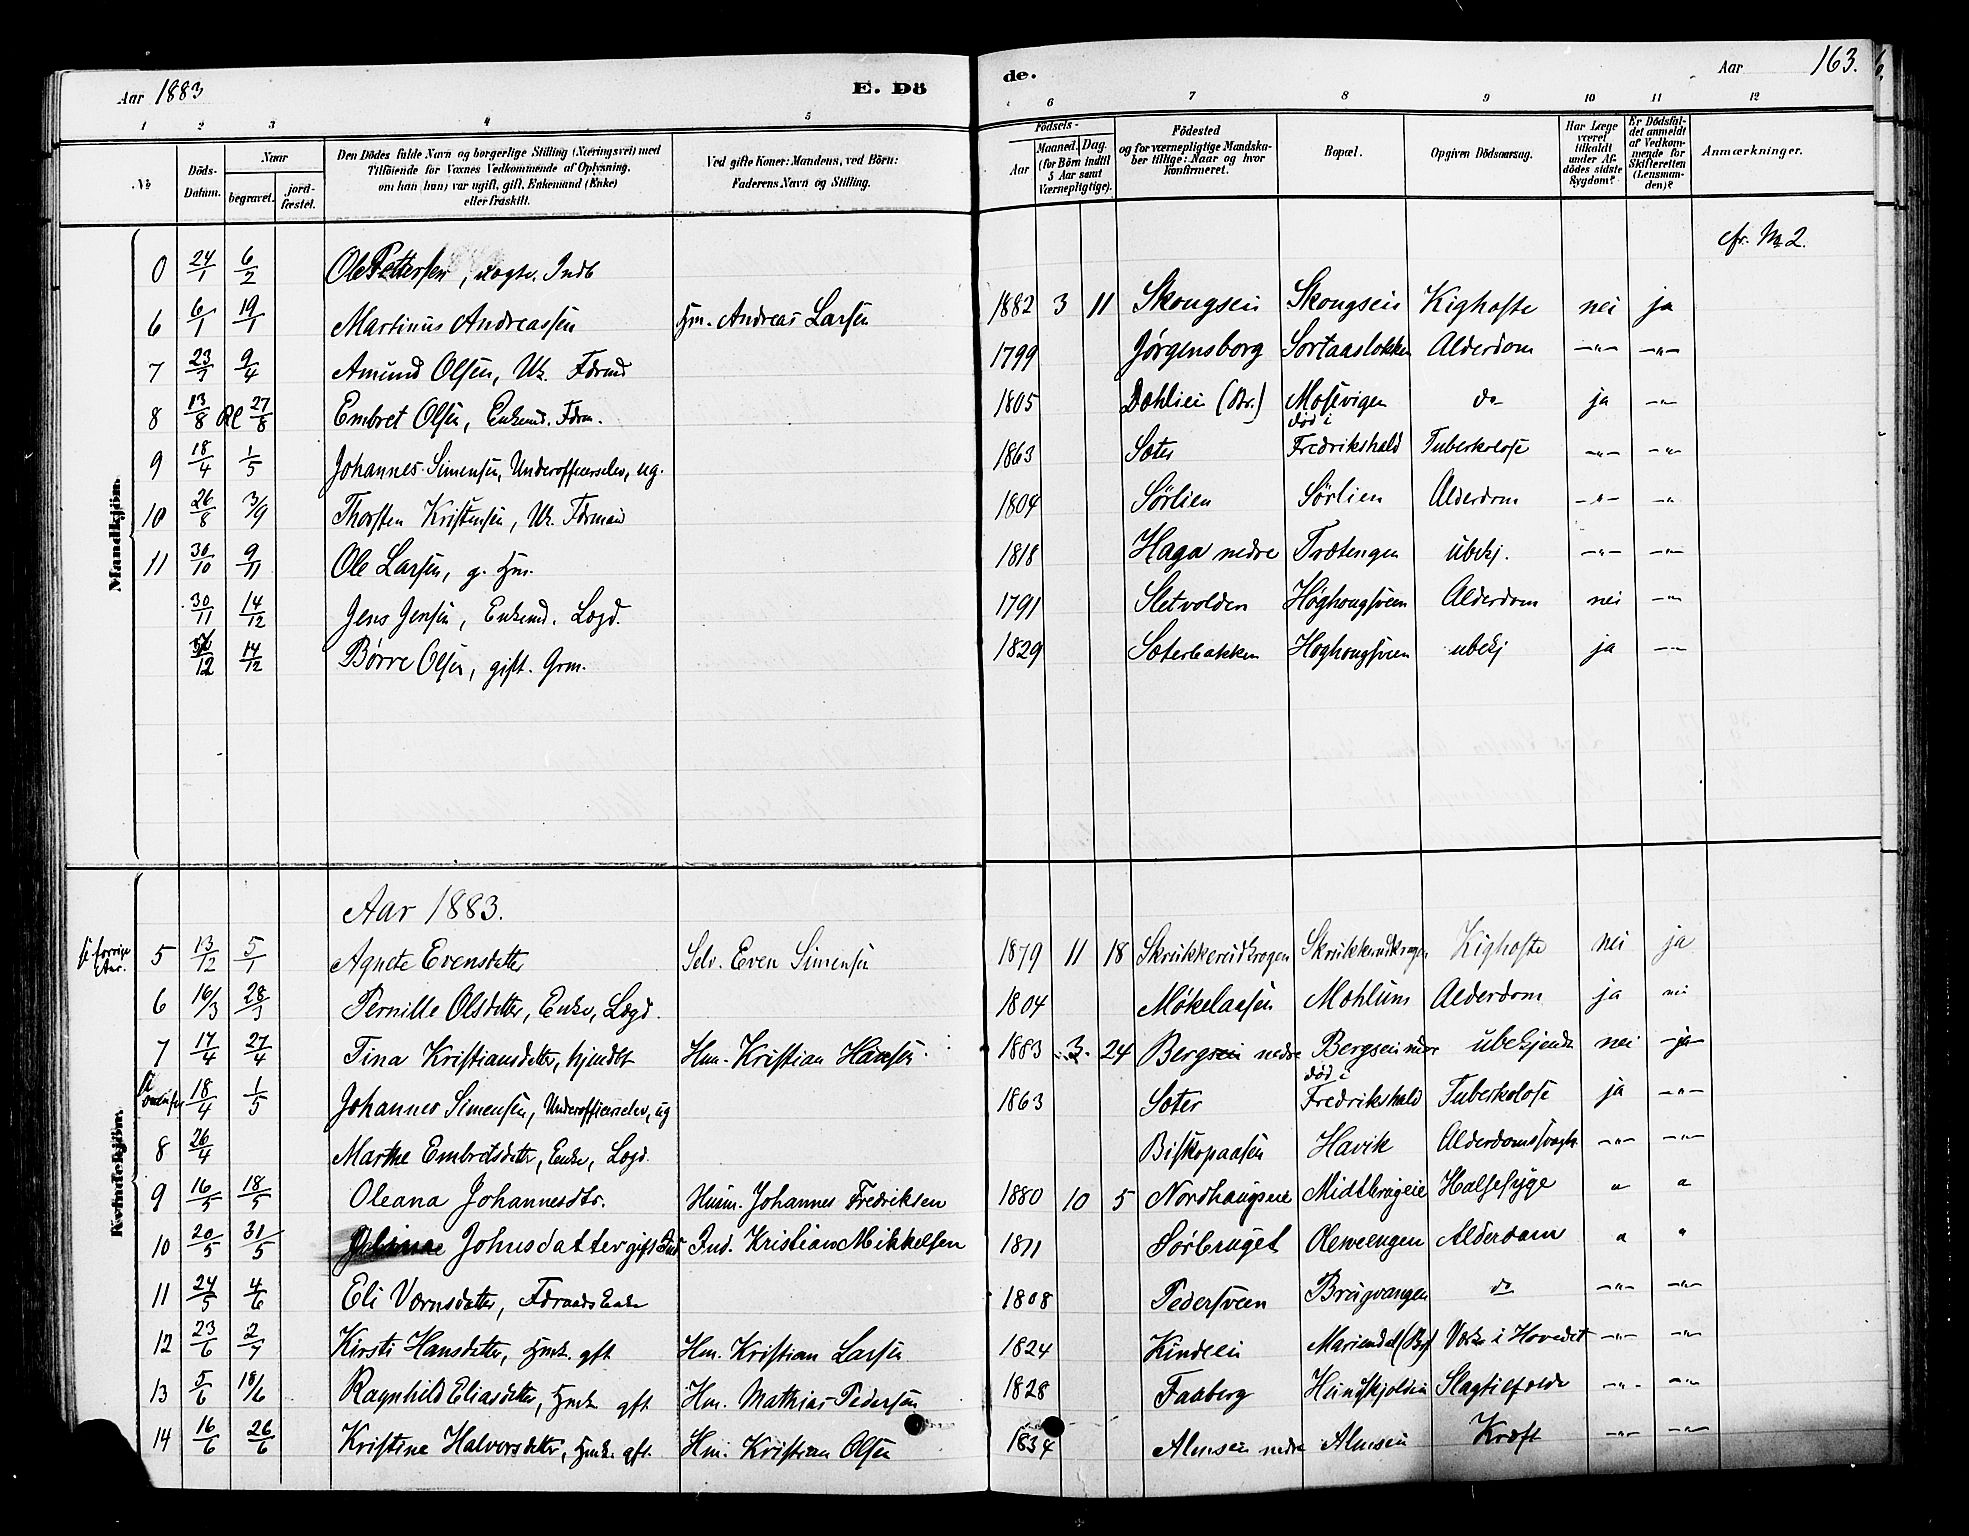 Aar 1883
E. Dö
de.
Aar
163.
1 2 3 4 5 6 7 8 9 10 11 12
No
Döds-Datum.
Naar
begravet.
jord-fæstet.
Den Dödes fulde Navn og borgerlige Stilling (Næringsvei) med
Tilföiende for Voxnes Vedkommende af Oplysning,
om han (hun) var ugift, gift, Enkemand (Enke)
eller fraskilt.
Ved gifte Koner: Mandens, ved Börn:
Faderens Navn og Stilling.
Födsels-
Aar
Maaned.
Dag.
(for Börn indtil 5 Aar samt Værnepligtige).
Födested
og for værnepligtige Mandska-
ber tillige: Naar og hvor
konfirmeret.
Bopæl.
Opgiven Dödsaarsag.
Har Læge været tilkaldt under Af-dödes sidste Sygdom?
Er Dödsfal-det anmeldt af Vedkom-mende for Skifteretten (Lensman-den)?
Anmærkninger.
Mandkjön.
0 24/1 6/2 Ole Pettersen, Ind. cfr. No 2.
6 6/1 19/1 Martinus Andreassen Hm. Andreas Larsen 1882 3 11 Skougseie Skougseie Kighoste nei ja
7 23/3 9/4 Amund Olsen, Uk. Fdrmd 1799 Jørgensborg Sortaasløkken Alderdom -"- -"-
8 13/8 27/8 Embret Olsen, Enkemd. Fdrm. 1805 Dahliei (Br.) Mosevigen do ja -"-
9 18/4 1/5 Johannes Simensen, Underofficerselev, ug. 1863 Sæter død i Fredrikshald Tuberkolose -"- -"-
10 26/8 3/9 Thorsten Kristensen, Uk. Fdrmand 1804 Sörlien Sörlien Alderdom -"- -"
11 30/10 9/11 Ole Larsen, g. Hm. 1818 Haga nedre Trætengen ubekj. -"- -"-
30/11 14/12 Jens Jensen, Enkemd. Lægd. 1791 Sletvolden Høghougsveen Alderdom nei -"-
/12 14/12 Børre Olsen, gift. Grm. 1829 Sæterbakken Høghougsveen ubekj ja -"-
Kvindekjön.
Aar 1883.
forrige Aar. 5 13/12 5/1 Agnete Evensdatter Selv. Even Simensen 1879 11 18 Skrukkereidkrogen Skrukkereidkrogen Kighoste nei ja
6 16/3 28/3 Pernille Olsdatter, Enke, Lægd. 1804 Møkelaasen Mæhlum Alderdom ja nei
7 17/4 27/4 Tina Kristiansdatter, hjemdøbt Hm. Kristian Hansen. 1883 3 24 Bergseie nedre Bergseie nedre ubekjendt nei ja
18/4 1/5 Johannes Simensen, Underofficerselev, ug 1863 Sæter død i Fredrikshald Tuberkolose ja -"-
8 26/4 Marthe Embretsdatter, Enke, Lægd. Biskopaasen Havik Alderdomssvagh. -"- -"-
9 16/5 18/5 Oleana Johannesdtr. Husm. Johannes Fredriksen 1880 10 5 Nordhaugseie Midtbrugeie Halsesyge " "
10 20/5 31/5 Johnsdatter gift Ind. Kristian Mikkelsen 1811 Sörbruget Oleveengen Alderdom " "
11 24/5 4/6 EliVærnsdatter, Fdraads Enke 1808 Pedersveen Brugvangen do -"- -"-
12 23/6 2/7 Kirsti Hansdatter, Hmk. gft Hm. Kristian Larsen 1824 Kindlei Mariendal (Br) Værk i Hovedet -"- -"-
13 5/6 18/6 Ragnhild Eliasdatter, Hmk gft Hm. Mathias Pedersen 1828 Faaberg Hundskjolden Slagtilfælde -"- -"-
14 16/6 26/6 Kristine Halvorsdatter, Hmk. gft. Hm. Kristian Olsen 1834 Almseie nedre Almseie Kræft -"- -"-